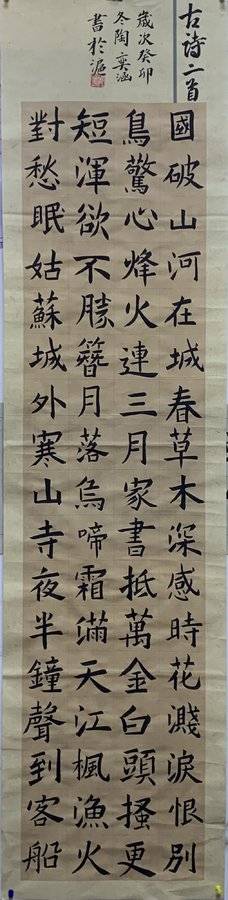 古詩二首
歲次癸卯
冬陶奕涵
書於滬
國破山河在城春草木深感時花濺淚恨別
鳥驚心烽火連三月家書抵萬金白頭搔更
短渾欲不勝簪月落烏啼霜滿天江楓漁火
對愁眠姑蘇城外寒山寺夜半鐘聲到客船